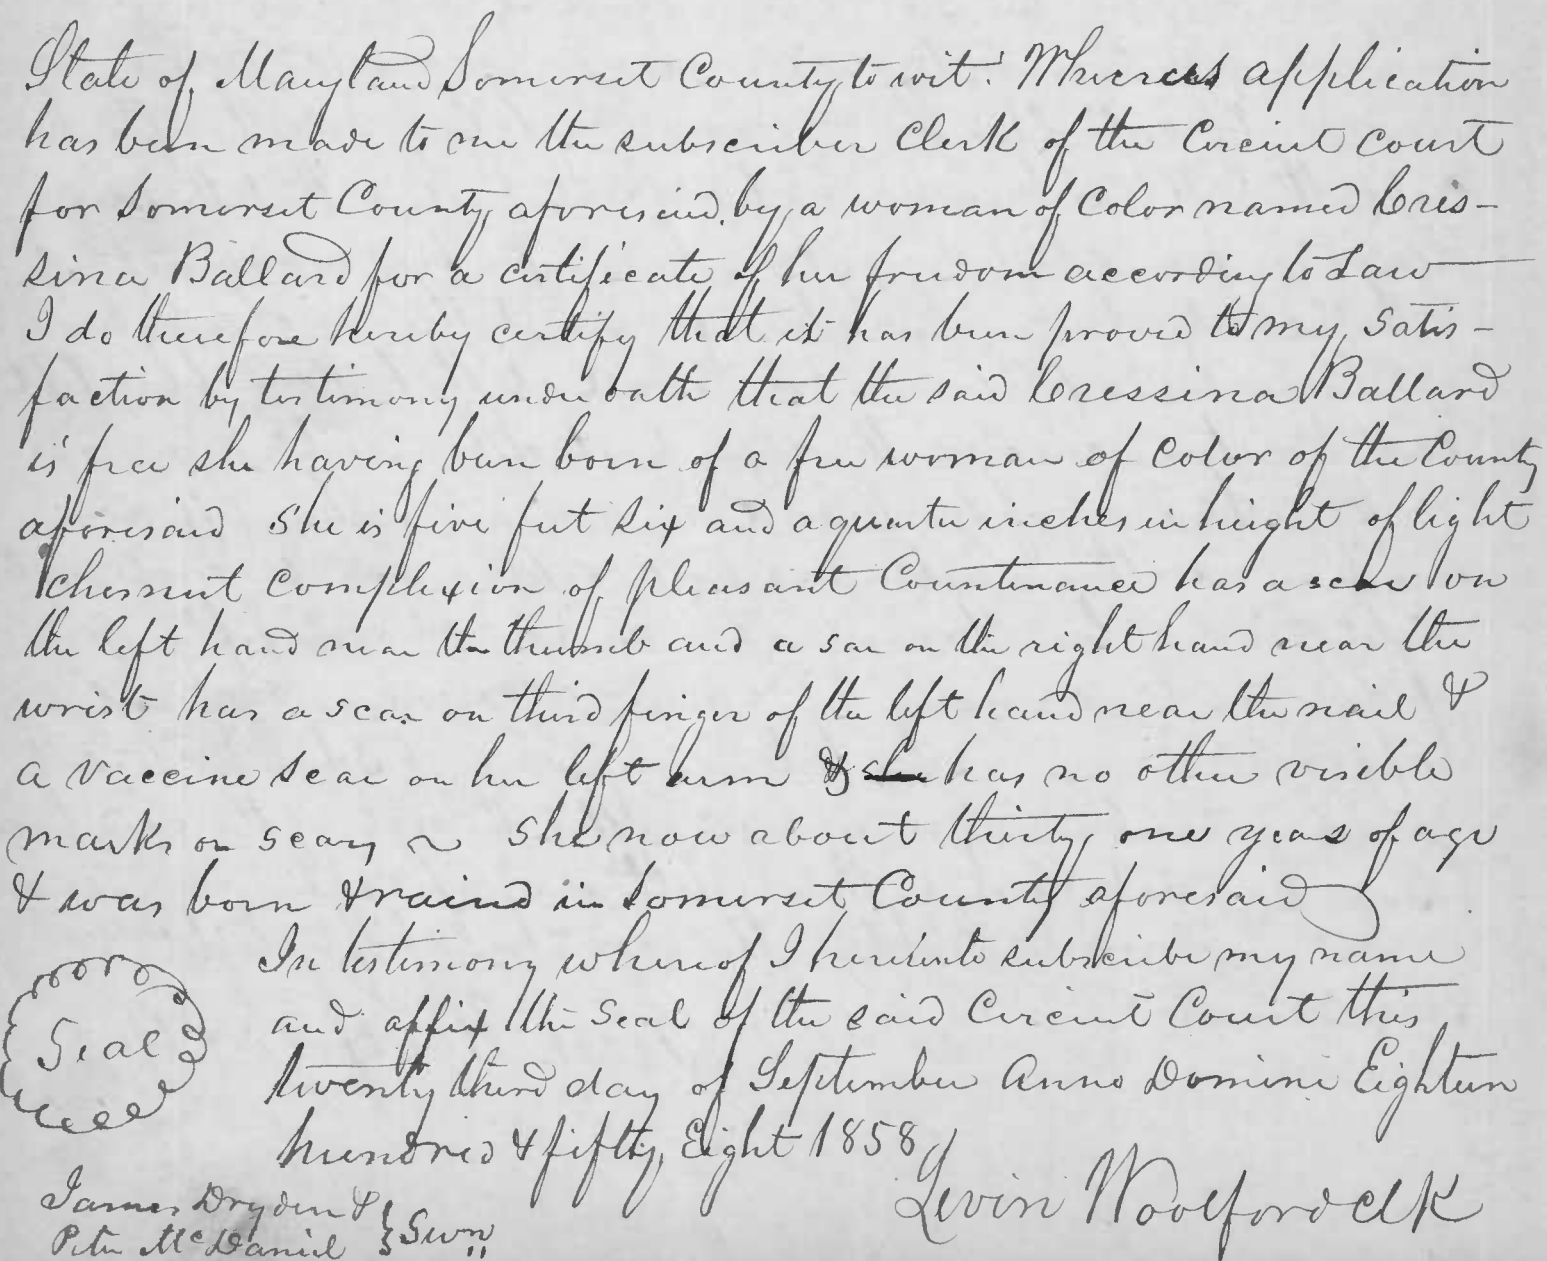 State of Maryland Somerset County to wit: Whereas application
has been made to me the subscriber Clerk of the Circuit Court
for Somerset County aforesaid, by a woman of Color named Cres-
sina Ballard for a certificate of her freedom according to Law
I do therefore hereby certify that it has been proved to my satis-
faction by testimony under oath that the said Cressina Ballard
is free she having been born of a free woman of Color of the County
aforesaid She is five feet six and a quarter inches in height of light
chesnut complexion of pleasant Countenance has a scar on
the left hand near the thumb and a scar on the right hand near the
wrist has a scar on third finger of the left hand near the nail &
a vaccine scar on her left arm & she has no other visible
marks or scars ~ She now about thirty one years of age
& was born & raised in Somerset County aforesaid
In testimony whereof I hereunto subscribe my name
and affix the Seal of the said Circuit Court this
twenty third day of September Anno Domini Eighteen
hundred & fifty Eight 1858
Seal
Levin Woolford Clk
James Dryden &
Peter McDaniel } Swn